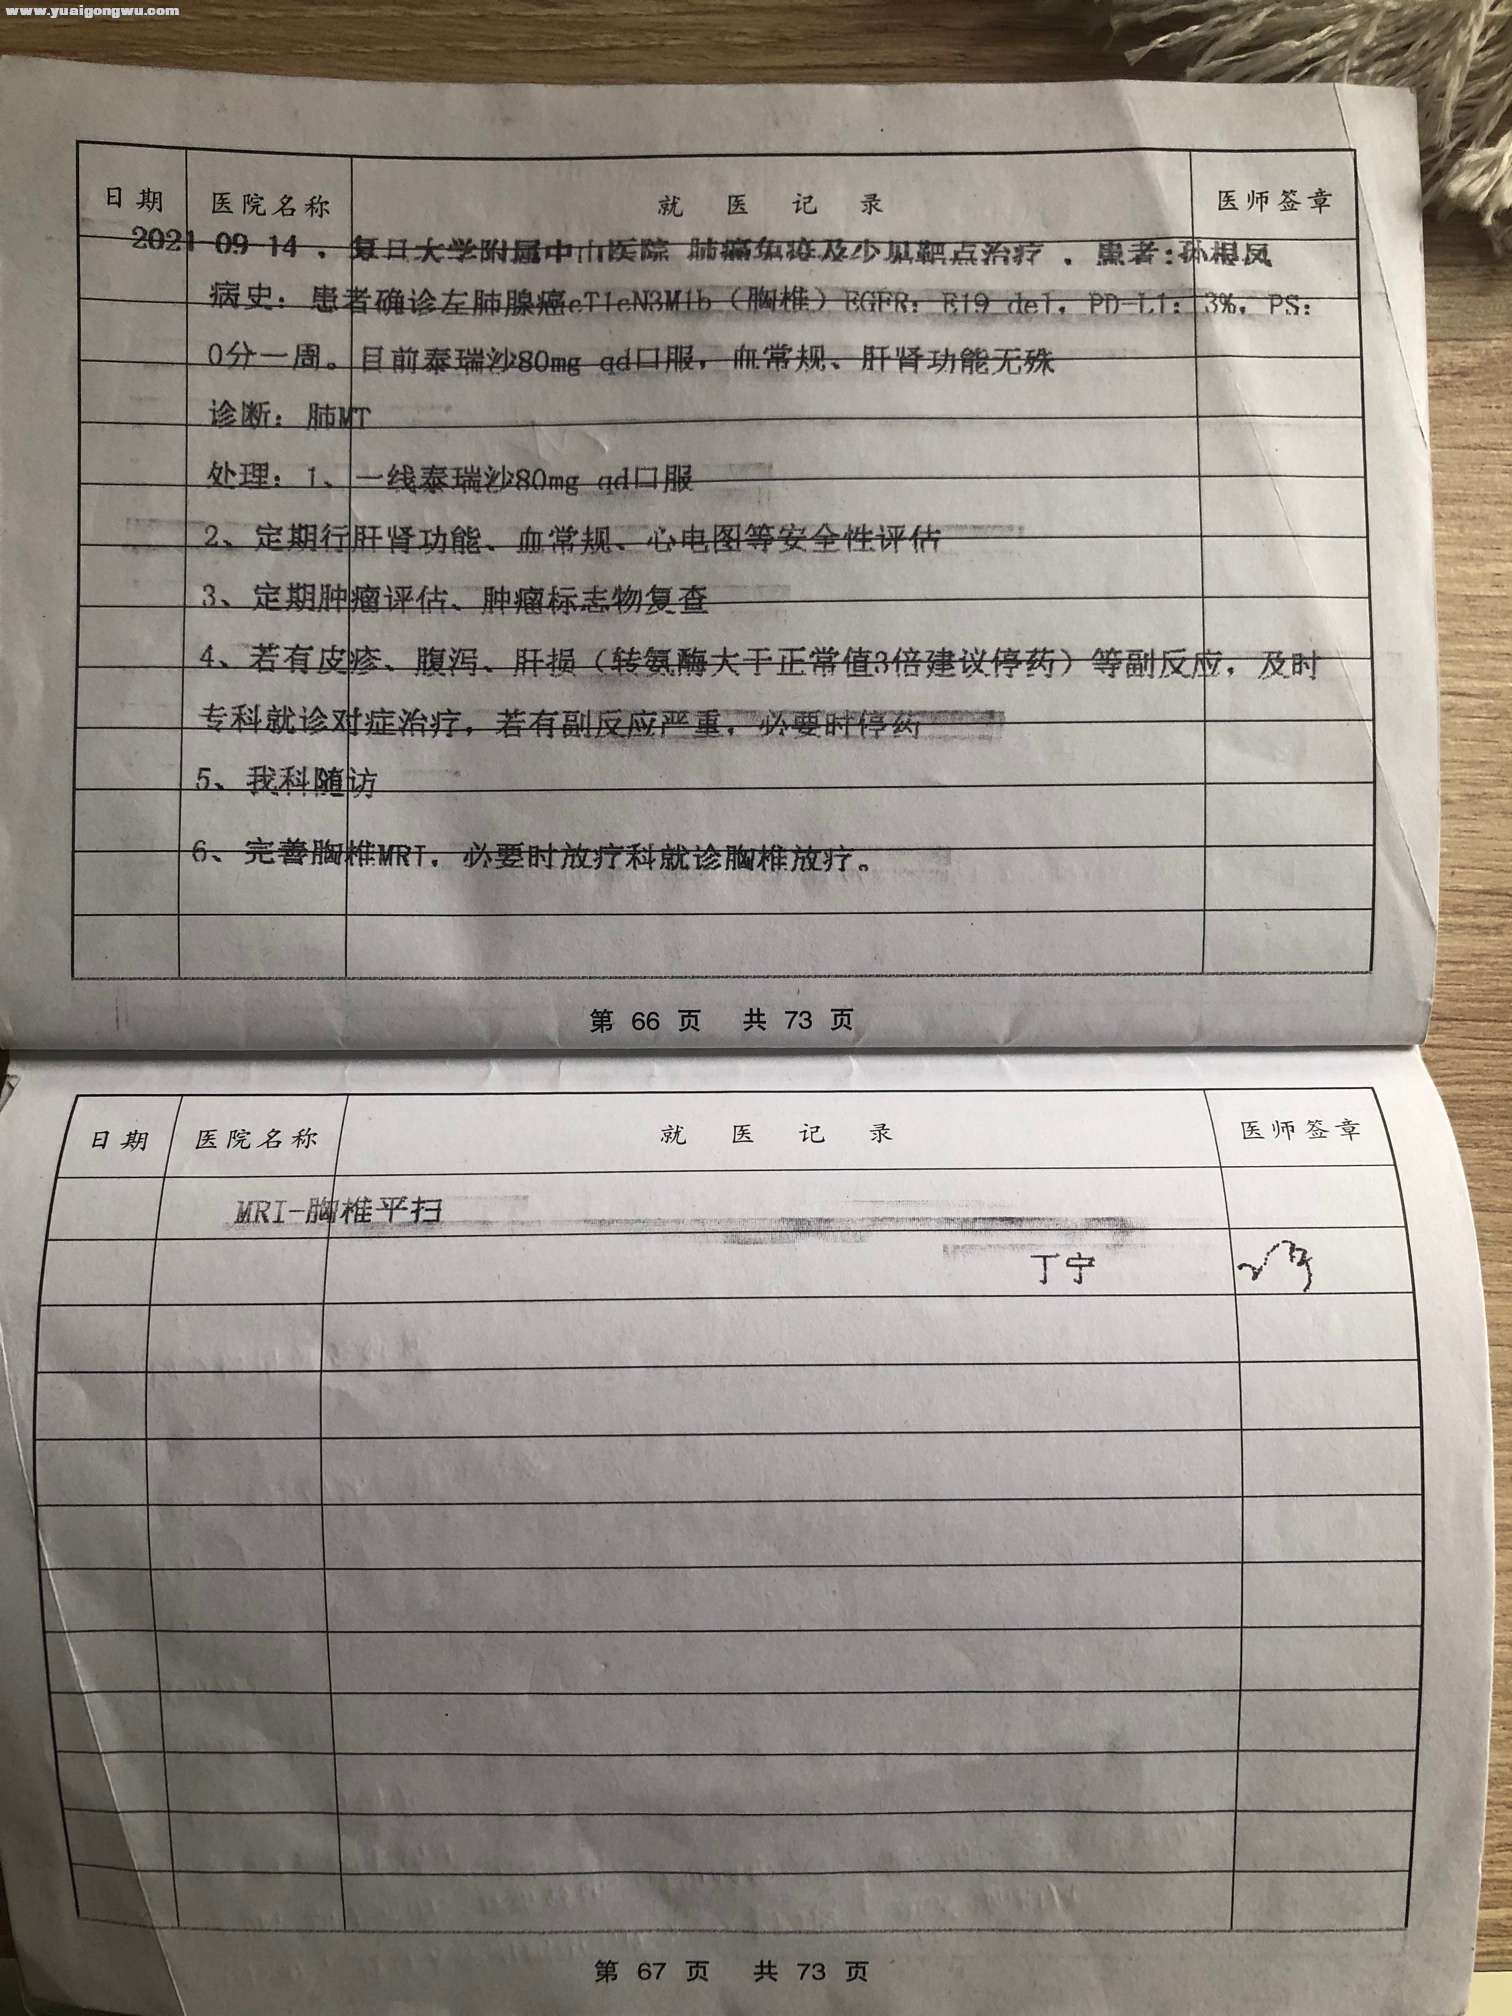 www.yuaigongwu.com
日期 医院名称 就医记录 医师签章
2021-09-14 . 复旦大学附属中山医院 肺癌免疫及少见靶点治疗 . 患者:孙根凤
病史：患者确诊左肺腺癌cT1cN3M1b（胸椎）EGFR：E19 del，PD-L1：3%，PS：
0分一周。目前泰瑞沙80mg qd口服，血常规、肝肾功能无殊
诊断：肺MT
处理：1、一线泰瑞沙80mg qd口服
2、定期行肝肾功能、血常规、心电图等安全性评估
3、定期肿瘤评估、肿瘤标志物复查
4、若有皮疹、腹泻、肝损（转氨酶大于正常值3倍建议停药）等副反应，及时
专科就诊对症治疗，若有副反应严重，必要时停药
5、我科随访
6、完善胸椎MRI，必要时放疗科就诊胸椎放疗。
第 66 页 共 73 页
日期 医院名称 就医记录 医师签章
MRI-胸椎平扫
丁宁
第 67 页 共 73 页